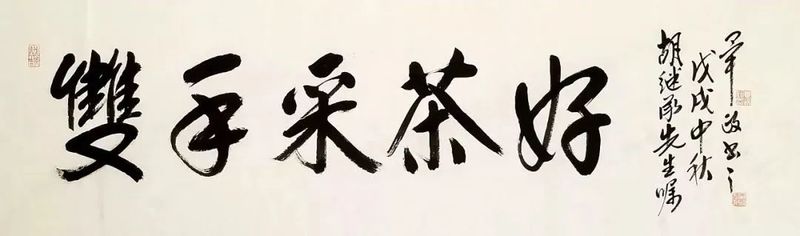 雙手采茶好
胡继承先生嘱
戊戌中秋
书之